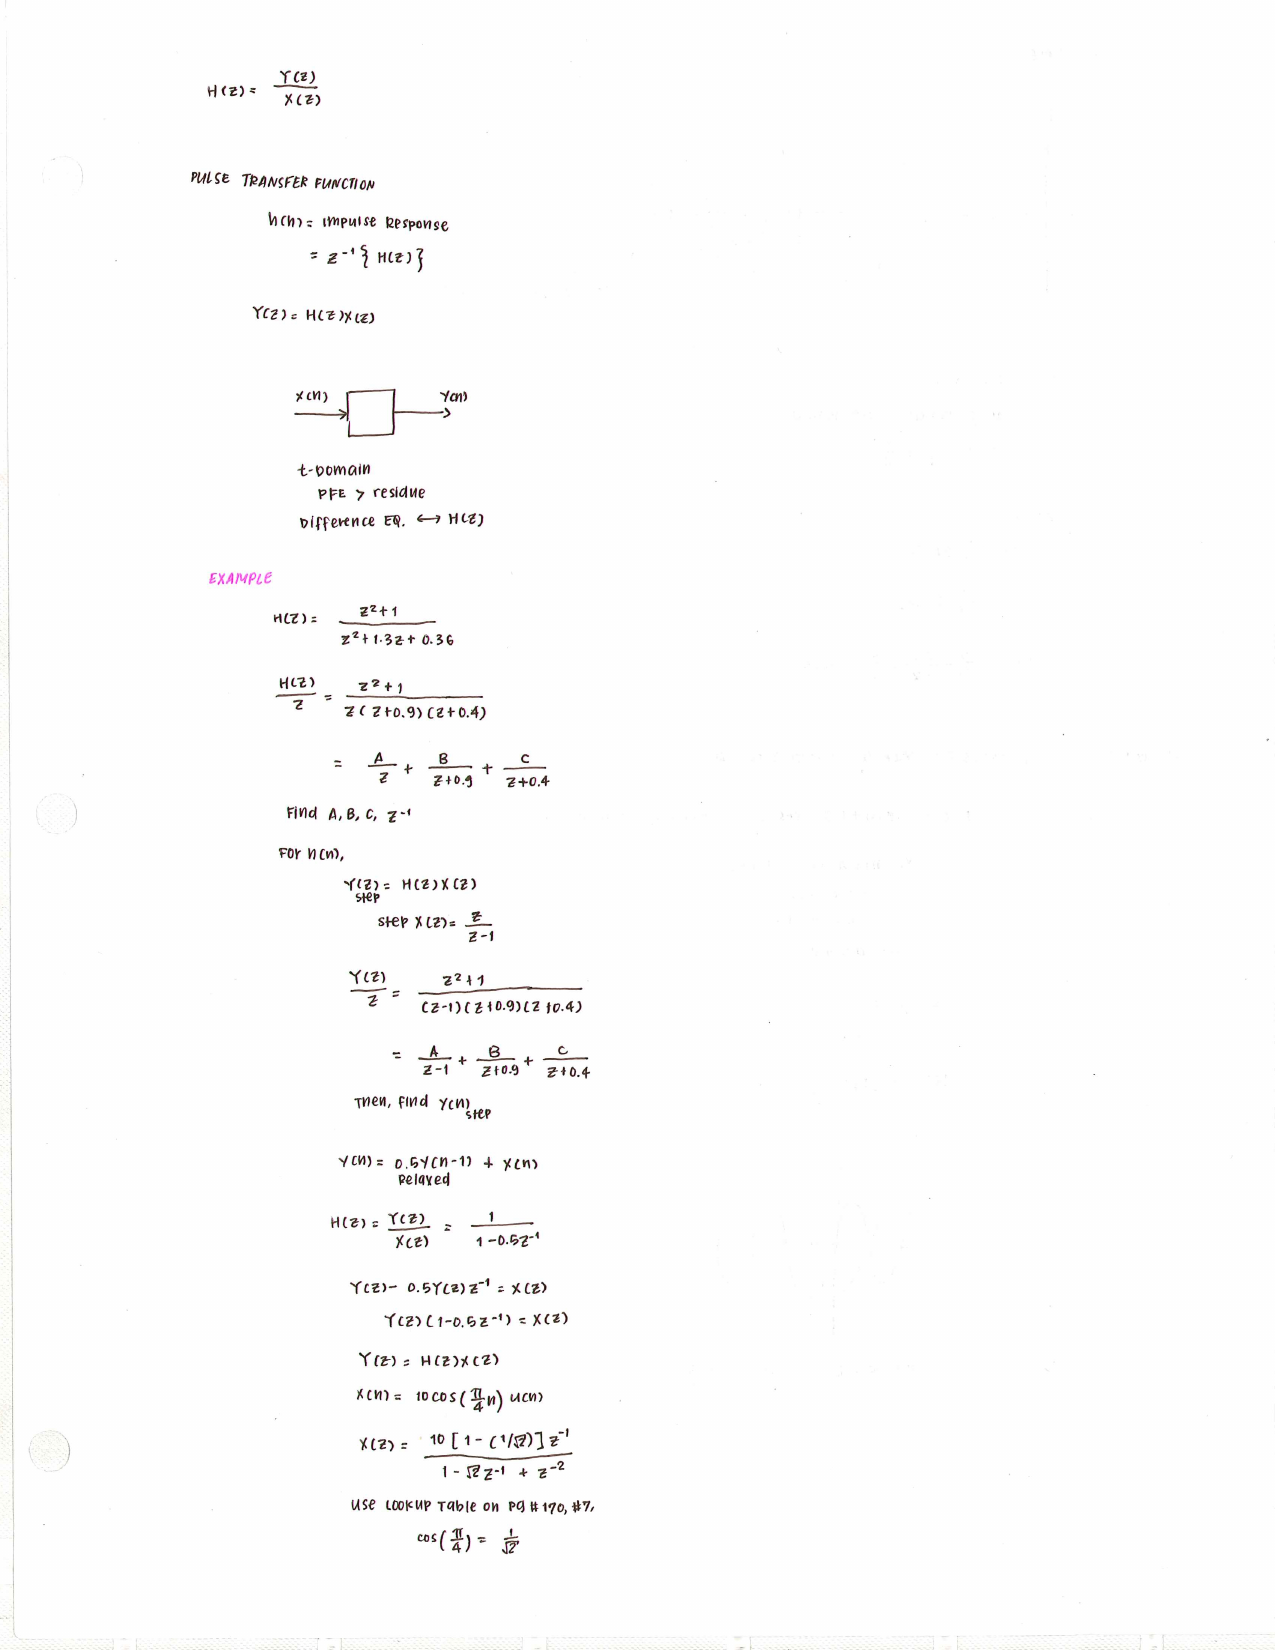 H(z) = Y(z) / X(z)
PULSE TRANSFER FUNCTION
h(n) = impulse Response
= z^-1 { H(z) }
Y(z) = H(z)X(z)
x(n) y(n)
t-Domain
PFE > residue
Difference EQ. ↔ H(z)
EXAMPLE
H(z) = (z^2+1) / (z^2+1.3z+0.36)
H(z)/z = (z^2+1) / (z(z+0.9)(z+0.4))
= A/z + B/(z+0.9) + C/(z+0.4)
Find A, B, C, z^-1
For h(n),
Y(z)step = H(z)X(z)
step X(z) = z/(z-1)
Y(z)/z = (z^2+1) / ((z-1)(z+0.9)(z+0.4))
= A/(z-1) + B/(z+0.9) + C/(z+0.4)
Then, find y(n)step
y(n) = 0.5y(n-1) + x(n)
Delayed
H(z) = Y(z)/X(z) = 1/(1-0.5z^-1)
Y(z) - 0.5Y(z)z^-1 = X(z)
Y(z)(1-0.5z^-1) = X(z)
Y(z) = H(z)X(z)
x(n) = 10cos(π/4 n) u(n)
X(z) = 10[1-(1/√2)]z^-1 / (1-√2z^-1 + z^-2)
use Lookup Table on pg #170, #7,
cos(π/4) = 1/√2